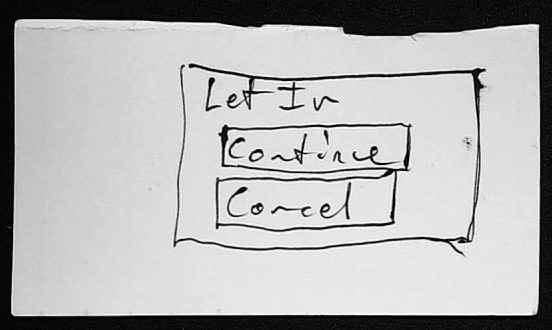 Let In
Continue
Cancel